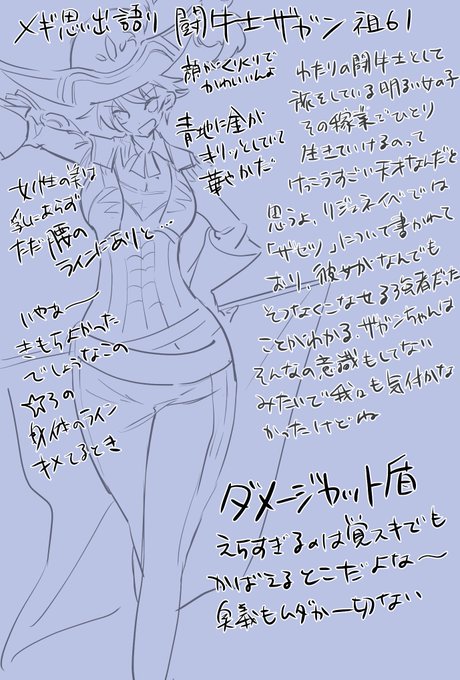 メギ思い出語り 闘牛士ザガン 祖61
顔がくりくりで
かわいいんよ
青地に金が
キリッとしてて
華やかだ
わたりの闘牛士として
旅をしている明るい女の子
その稼業でひとり
生きていけるのって
けっこうすごい天才なんだと
思うよ、リジェネイベでは
「ザセツ」について書かれて
おり、彼女がなんでも
そつなくこなせる強者だった
ことがわかる。ザガンちゃんは
そんなの意識もしてない
みたいで我々も気付かな
かったけどね
女性の美は
乳にあらず
ただ腰の
ラインにありと…
いやぁ〜
きもちよかった
でしょうなこの
☆3の
身体のライン
キメてるとき
ダメージカット盾
えらすぎるのは覚スキでも
かばえるとこだよな〜
奥義もムダが一切ない